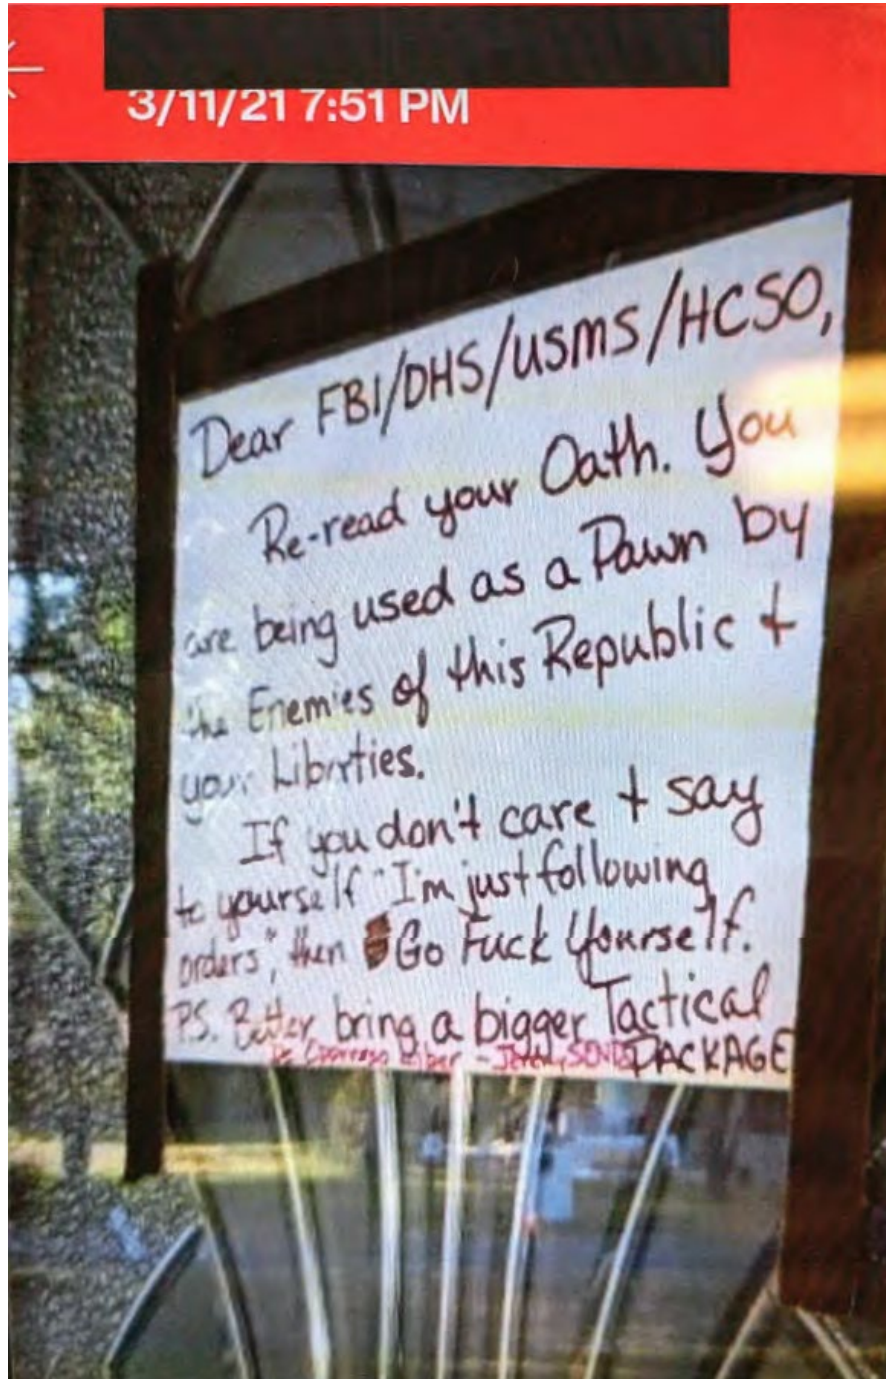 3/11/21 7:51 PM
Dear FBI/DHS/USMS/HCSO,
Re-read your Oath. You
are being used as a Pawn by
the Enemies of this Republic +
your Liberties.
If you don't care + say
to yourself "I'm just following
orders", then Go Fuck Yourself.
P.S. Better bring a bigger Tactical
PACKAGE
Liber - Jeremy SENDS